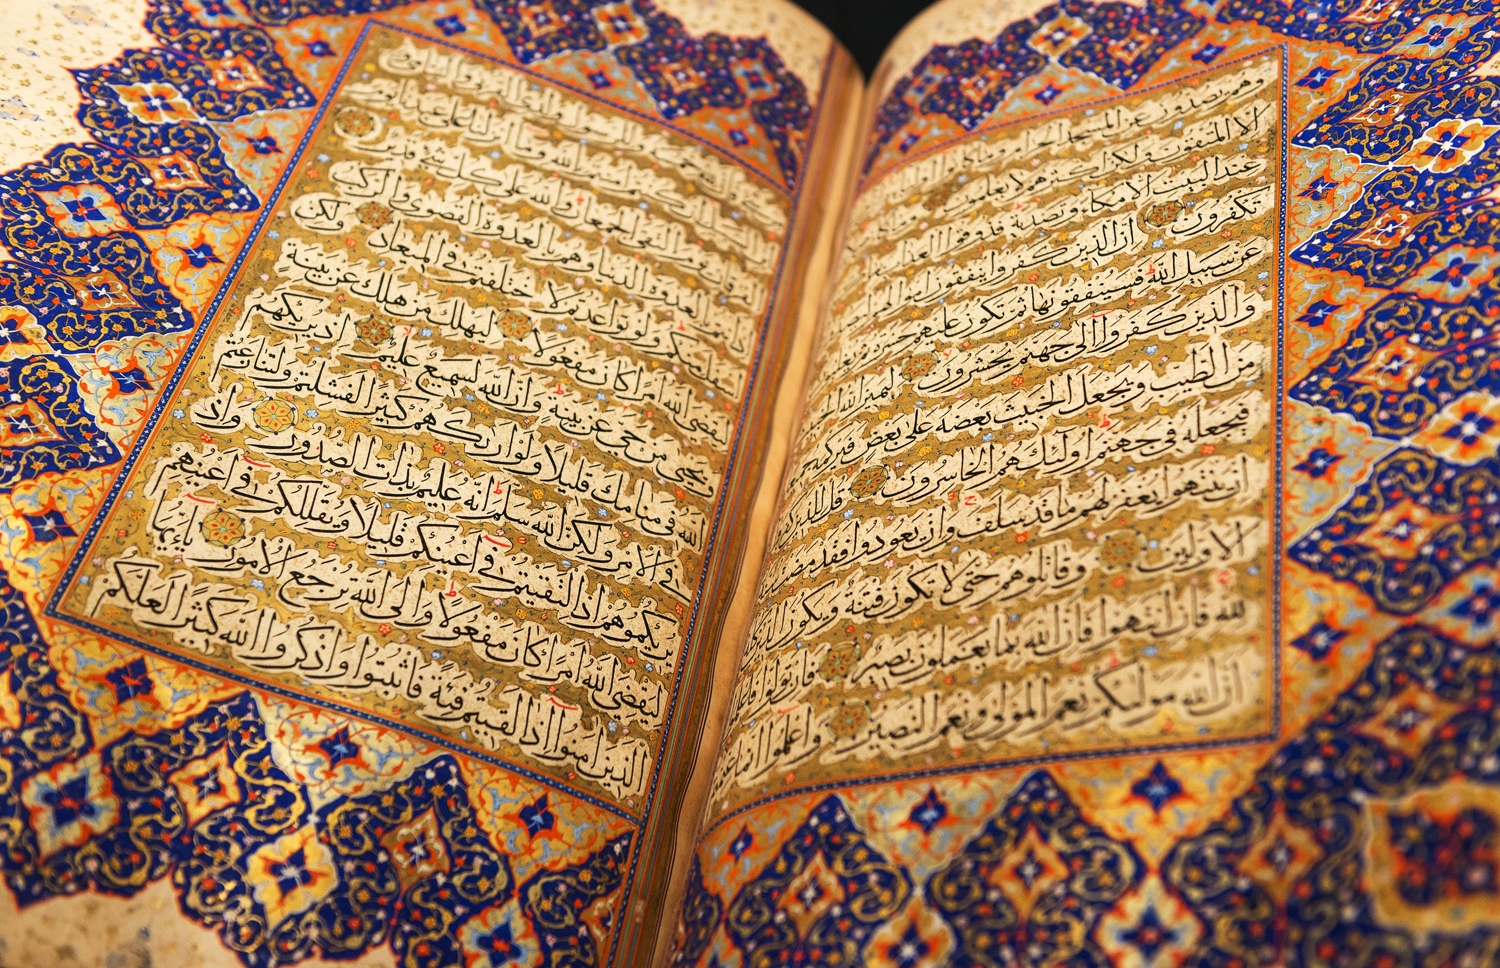 وهم يصدون عن المسجد الحرام وما كانوا
الا المتقون ولكن اكثرهم لا يعلمون
عند البيت الا مكاء وتصدية فذوقوا
تكفرون ان الذين كفروا ينفقون
عن سبيل الله فسينفقونها ثم تكون عليهم حسرة
والذين كفروا الى جهنم يحشرون ليميز الله
من الطيب ويجعل الخبيث بعضه على بعض فيركمه
فيجعله في جهنم اولئك هم الخاسرون قل للذين
ان ينتهوا يغفر لهم ما قد سلف وان يعودوا فقد مضت
الاولين وقاتلوهم حتى لا تكون فتنة ويكون الدين
لله فان انتهوا فان الله بما يعملون بصير وان تولوا فاعلموا
ان الله موليكم نعم المولى ونعم النصير واعلموا انما غنمتم
يوم التقى الجمعان والله على كل شئ قدير
بالعدوة الدنيا وهم بالعدوة القصوى والركب
ولو تواعدتم لاختلفتم في الميعاد ولكن
ليقضي الله امرا كان مفعولا ليهلك من هلك عن بينة
ويحيى من حي عن بينة وان الله لسميع عليم اذ يريكهم
الله في منامك قليلا ولو اراكهم كثيرا لفشلتم ولتنازعتم
في الامر ولكن الله سلم انه عليم بذات الصدور واذ
يريكموهم اذ التقيتم في اعينكم قليلا ويقللكم في اعينهم
ليقضي الله امرا كان مفعولا والى الله ترجع الامور ياءيها
الذين امنوا اذا لقيتم فئة فاثبتوا واذكروا الله كثيرا لعلكم